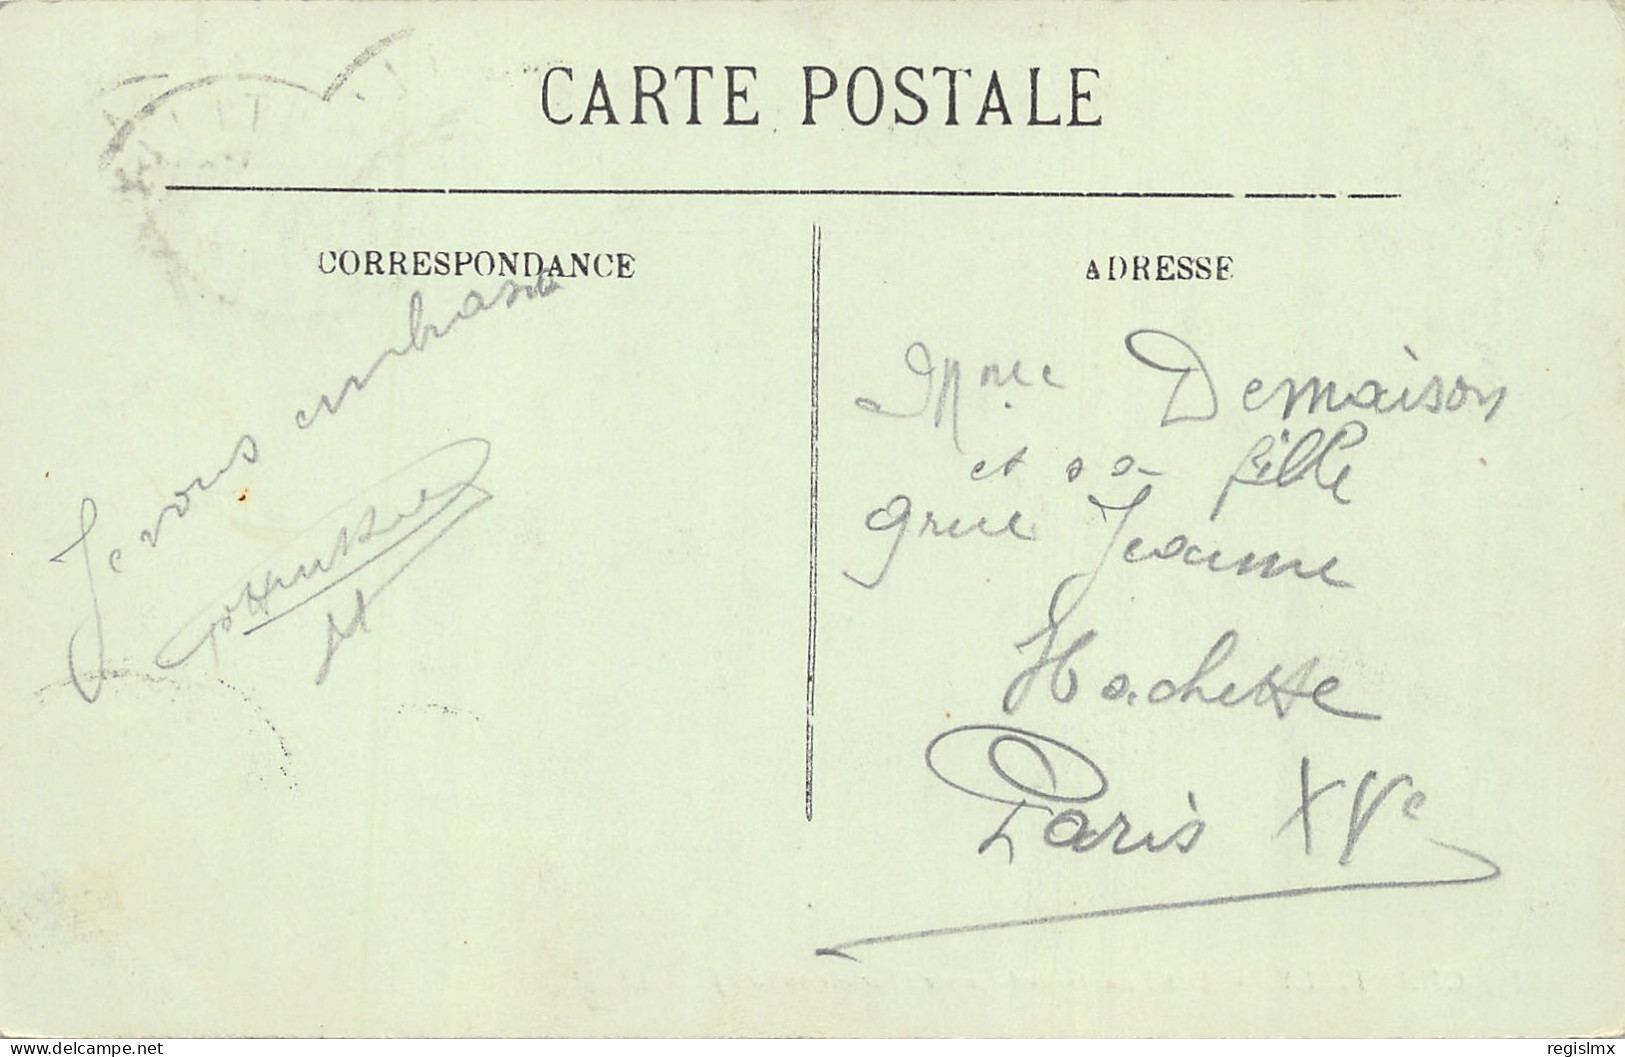 CARTE POSTALE
CORRESPONDANCE
ADRESSE
Je vous embrasse
Mme Demaison
et sa fille
9 rue Jeanne
Hachette
Paris XVe
www.delcampe.net
regislmx